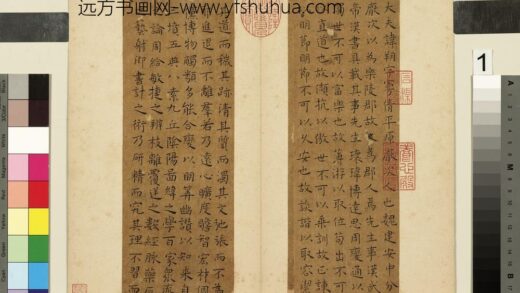 远方书画网-www.yfshuhua.com
大夫諱朔字曼倩平原厭次人也魏建安中分
厭次以為樂陵郡故又為郡人焉先生事漢武
帝漢書具載其事先生瓌瑋博達思周變通以
濁世不可以富樂也故薄遊以取位苟出不可
直道也故頡抗以傲世不可以垂訓故正諫
明節明節不可以久安也故詼諧以取容潔
道而穢其跡清其質而濁其文弛張而不為
進退而不離羣若乃遠心曠度贍智宏材倜
博物觸類多能合變以明筭幽讚以知來自
墳五典八索九丘陰陽圖緯之學百家眾流
論周給敏捷之辯枝離覆逆之數經脈藥石
藝射御書計之術乃研精而究其理不習而
1